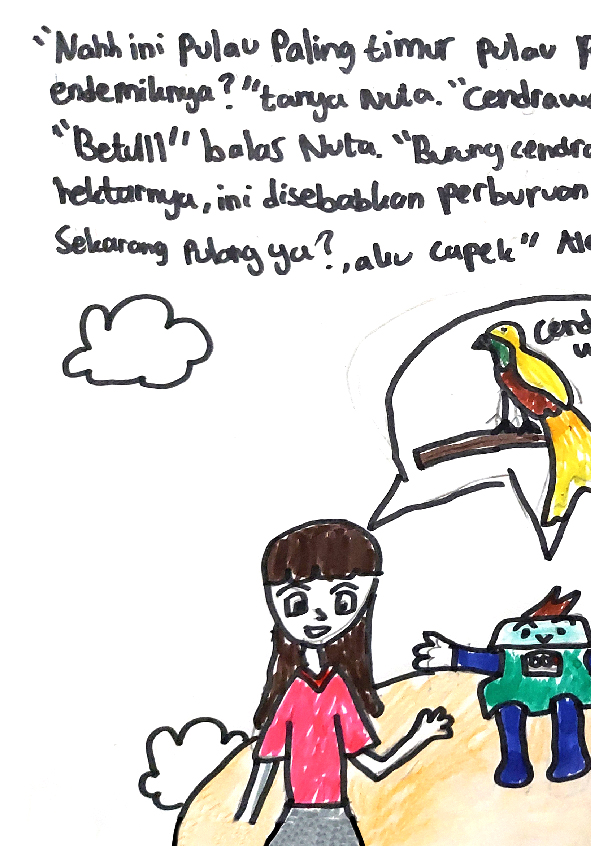 "Nahh ini Pulau Paling timur pulau
endemiknya?" tanya Nuta. "Cendraw
"Betulll" balas Nuta. "Burung cendra
hektarnya, ini disebabkan perburuan
Sekarang Pulang ya?, aku capek"
Cend